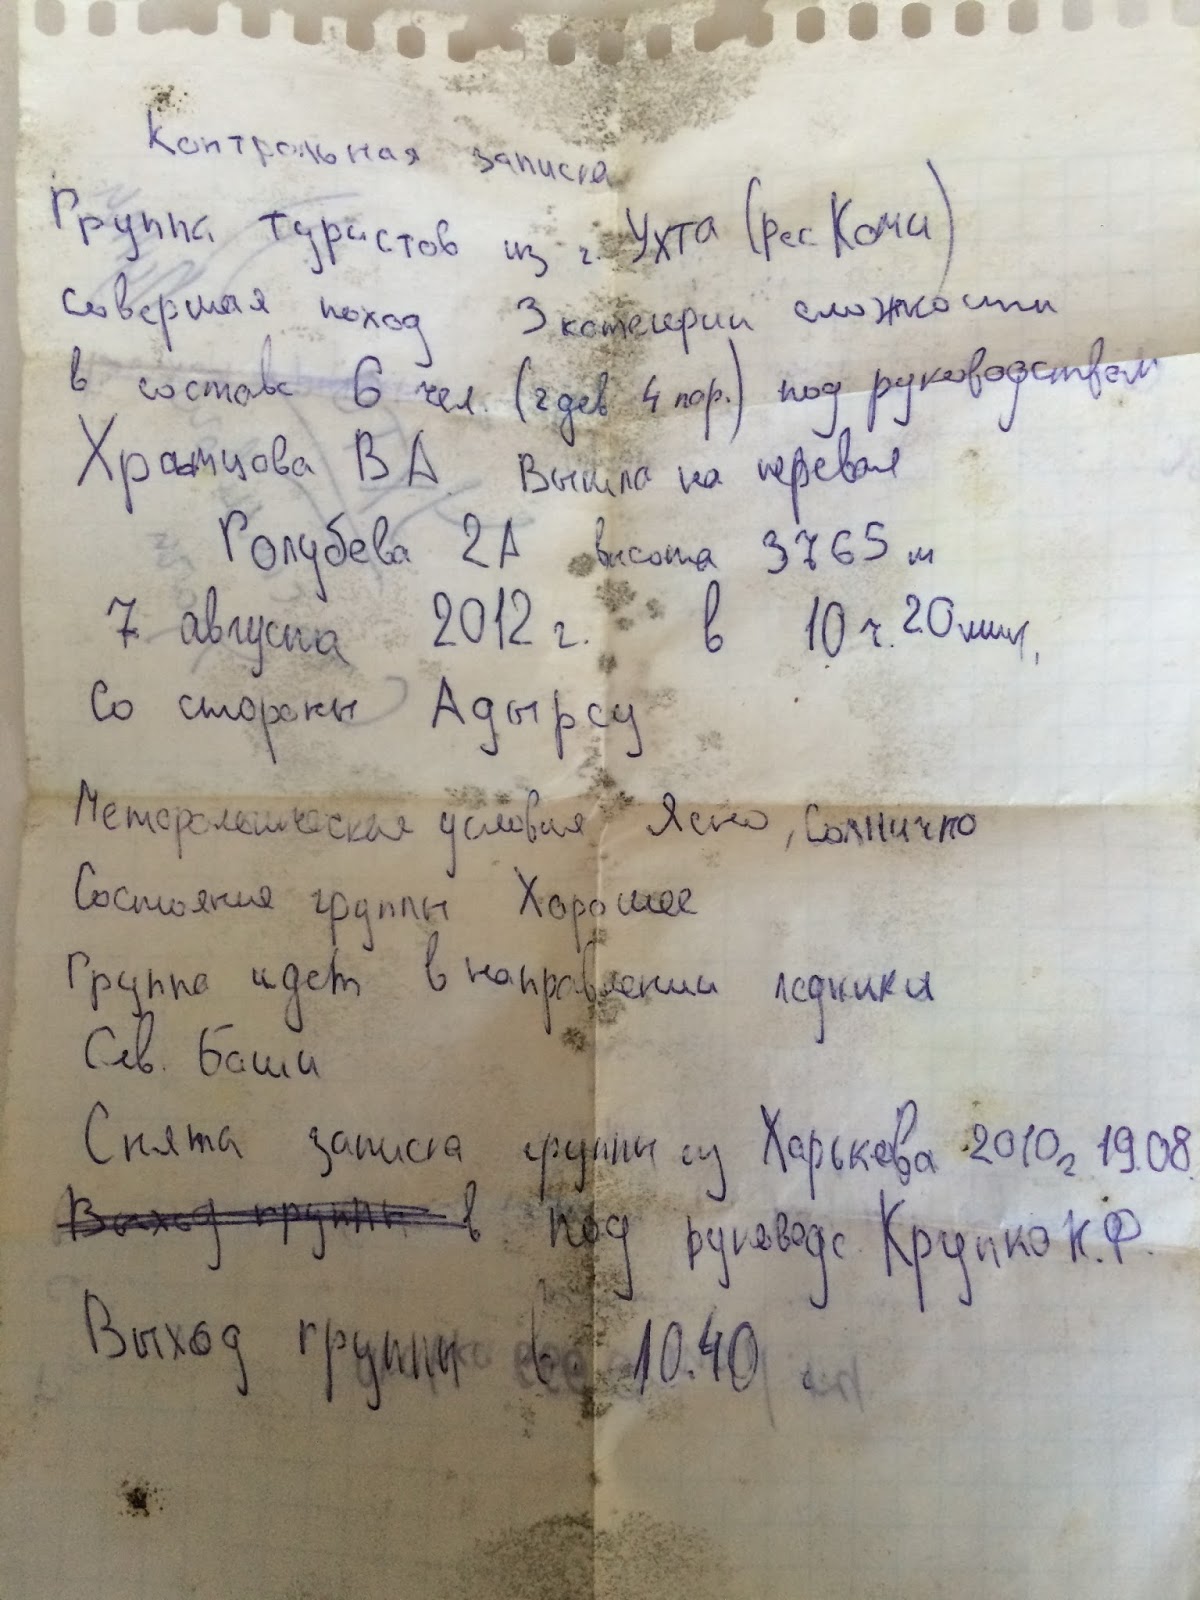 Контрольная записка
Группа туристов из г. Ухта (рес Коми)
совершая поход 3 категории сложности
в составе 6 чел. (2 дев 4 пар.) под руководством
Храмцова В А. Вышла на перевал
Голубева 2А высота 3765 м
7 августа 2012 г. в 10 ч. 20 мин,
Со стороны Адырсу
условия Ясно, Солнично
Состояния группы Хорошее
Группа идет в направлении ледника
Сев. Баши
Снята записка группы Харькова 2010г 19.08
Выход группы в под руководс. Крупко Н.Ф.
Выход группы в 10.40